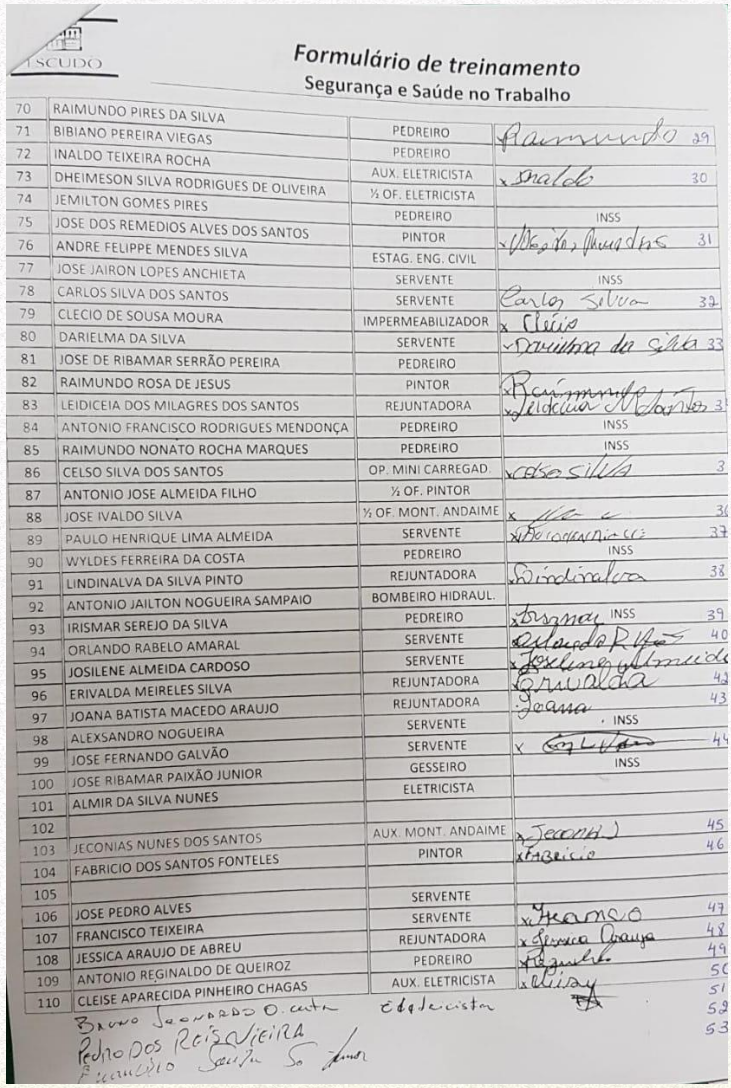 ESCUDO
Formulário de treinamento
Segurança e Saúde no Trabalho
70 RAIMUNDO PIRES DA SILVA PEDREIRO Raimundo 29
71 BIBIANO PEREIRA VIEGAS PEDREIRO
72 INALDO TEIXEIRA ROCHA AUX. ELETRICISTA x Inaldo 30
73 DHEIMESON SILVA RODRIGUES DE OLIVEIRA ½ OF. ELETRICISTA
74 JEMILTON GOMES PIRES PEDREIRO INSS
75 JOSE DOS REMEDIOS ALVES DOS SANTOS PINTOR 31
76 ANDRE FELIPPE MENDES SILVA ESTAG. ENG. CIVIL
77 JOSE JAIRON LOPES ANCHIETA SERVENTE INSS
78 CARLOS SILVA DOS SANTOS SERVENTE Carlos Silva 32
79 CLECIO DE SOUSA MOURA IMPERMEABILIZADOR x Clécio
80 DARIELMA DA SILVA SERVENTE da Silva 33
81 JOSE DE RIBAMAR SERRÃO PEREIRA PEDREIRO
82 RAIMUNDO ROSA DE JESUS PINTOR x Raimundo
83 LEIDICEIA DOS MILAGRES DOS SANTOS REJUNTADORA
84 ANTONIO FRANCISCO RODRIGUES MENDONÇA PEDREIRO INSS
85 RAIMUNDO NONATO ROCHA MARQUES PEDREIRO INSS
86 CELSO SILVA DOS SANTOS OP. MINI CARREGAD. x celso SILVA 3
87 ANTONIO JOSE ALMEIDA FILHO ½ OF. PINTOR
88 JOSE IVALDO SILVA ½ OF. MONT. ANDAIME x 36
89 PAULO HENRIQUE LIMA ALMEIDA SERVENTE 37
90 WYLDES FERREIRA DA COSTA PEDREIRO INSS
91 LINDINALVA DA SILVA PINTO REJUNTADORA x Lindinalva 38
92 ANTONIO JAILTON NOGUEIRA SAMPAIO BOMBEIRO HIDRAUL.
93 IRISMAR SEREJO DA SILVA PEDREIRO INSS 39
94 ORLANDO RABELO AMARAL SERVENTE 40
95 JOSILENE ALMEIDA CARDOSO SERVENTE x Josilene Almeida
96 ERIVALDA MEIRELES SILVA REJUNTADORA x Erivalda 42
97 JOANA BATISTA MACEDO ARAUJO REJUNTADORA Joana 43
98 ALEXSANDRO NOGUEIRA SERVENTE INSS
99 JOSE FERNANDO GALVÃO SERVENTE x 44
100 JOSE RIBAMAR PAIXÃO JUNIOR GESSEIRO INSS
101 ALMIR DA SILVA NUNES ELETRICISTA
102
103 JECONIAS NUNES DOS SANTOS AUX. MONT. ANDAIME 45
104 FABRICIO DOS SANTOS FONTELES PINTOR x FABRICIO 46
105
106 JOSE PEDRO ALVES SERVENTE
107 FRANCISCO TEIXEIRA SERVENTE 47
108 JESSICA ARAUJO DE ABREU REJUNTADORA x Jessica Araujo 48
109 ANTONIO REGINALDO DE QUEIROZ PEDREIRO 49
110 CLEISE APARECIDA PINHEIRO CHAGAS AUX. ELETRICISTA 50
51
BRUNO LEONARDO 52
PEDRO DOS REIS VIEIRA 53